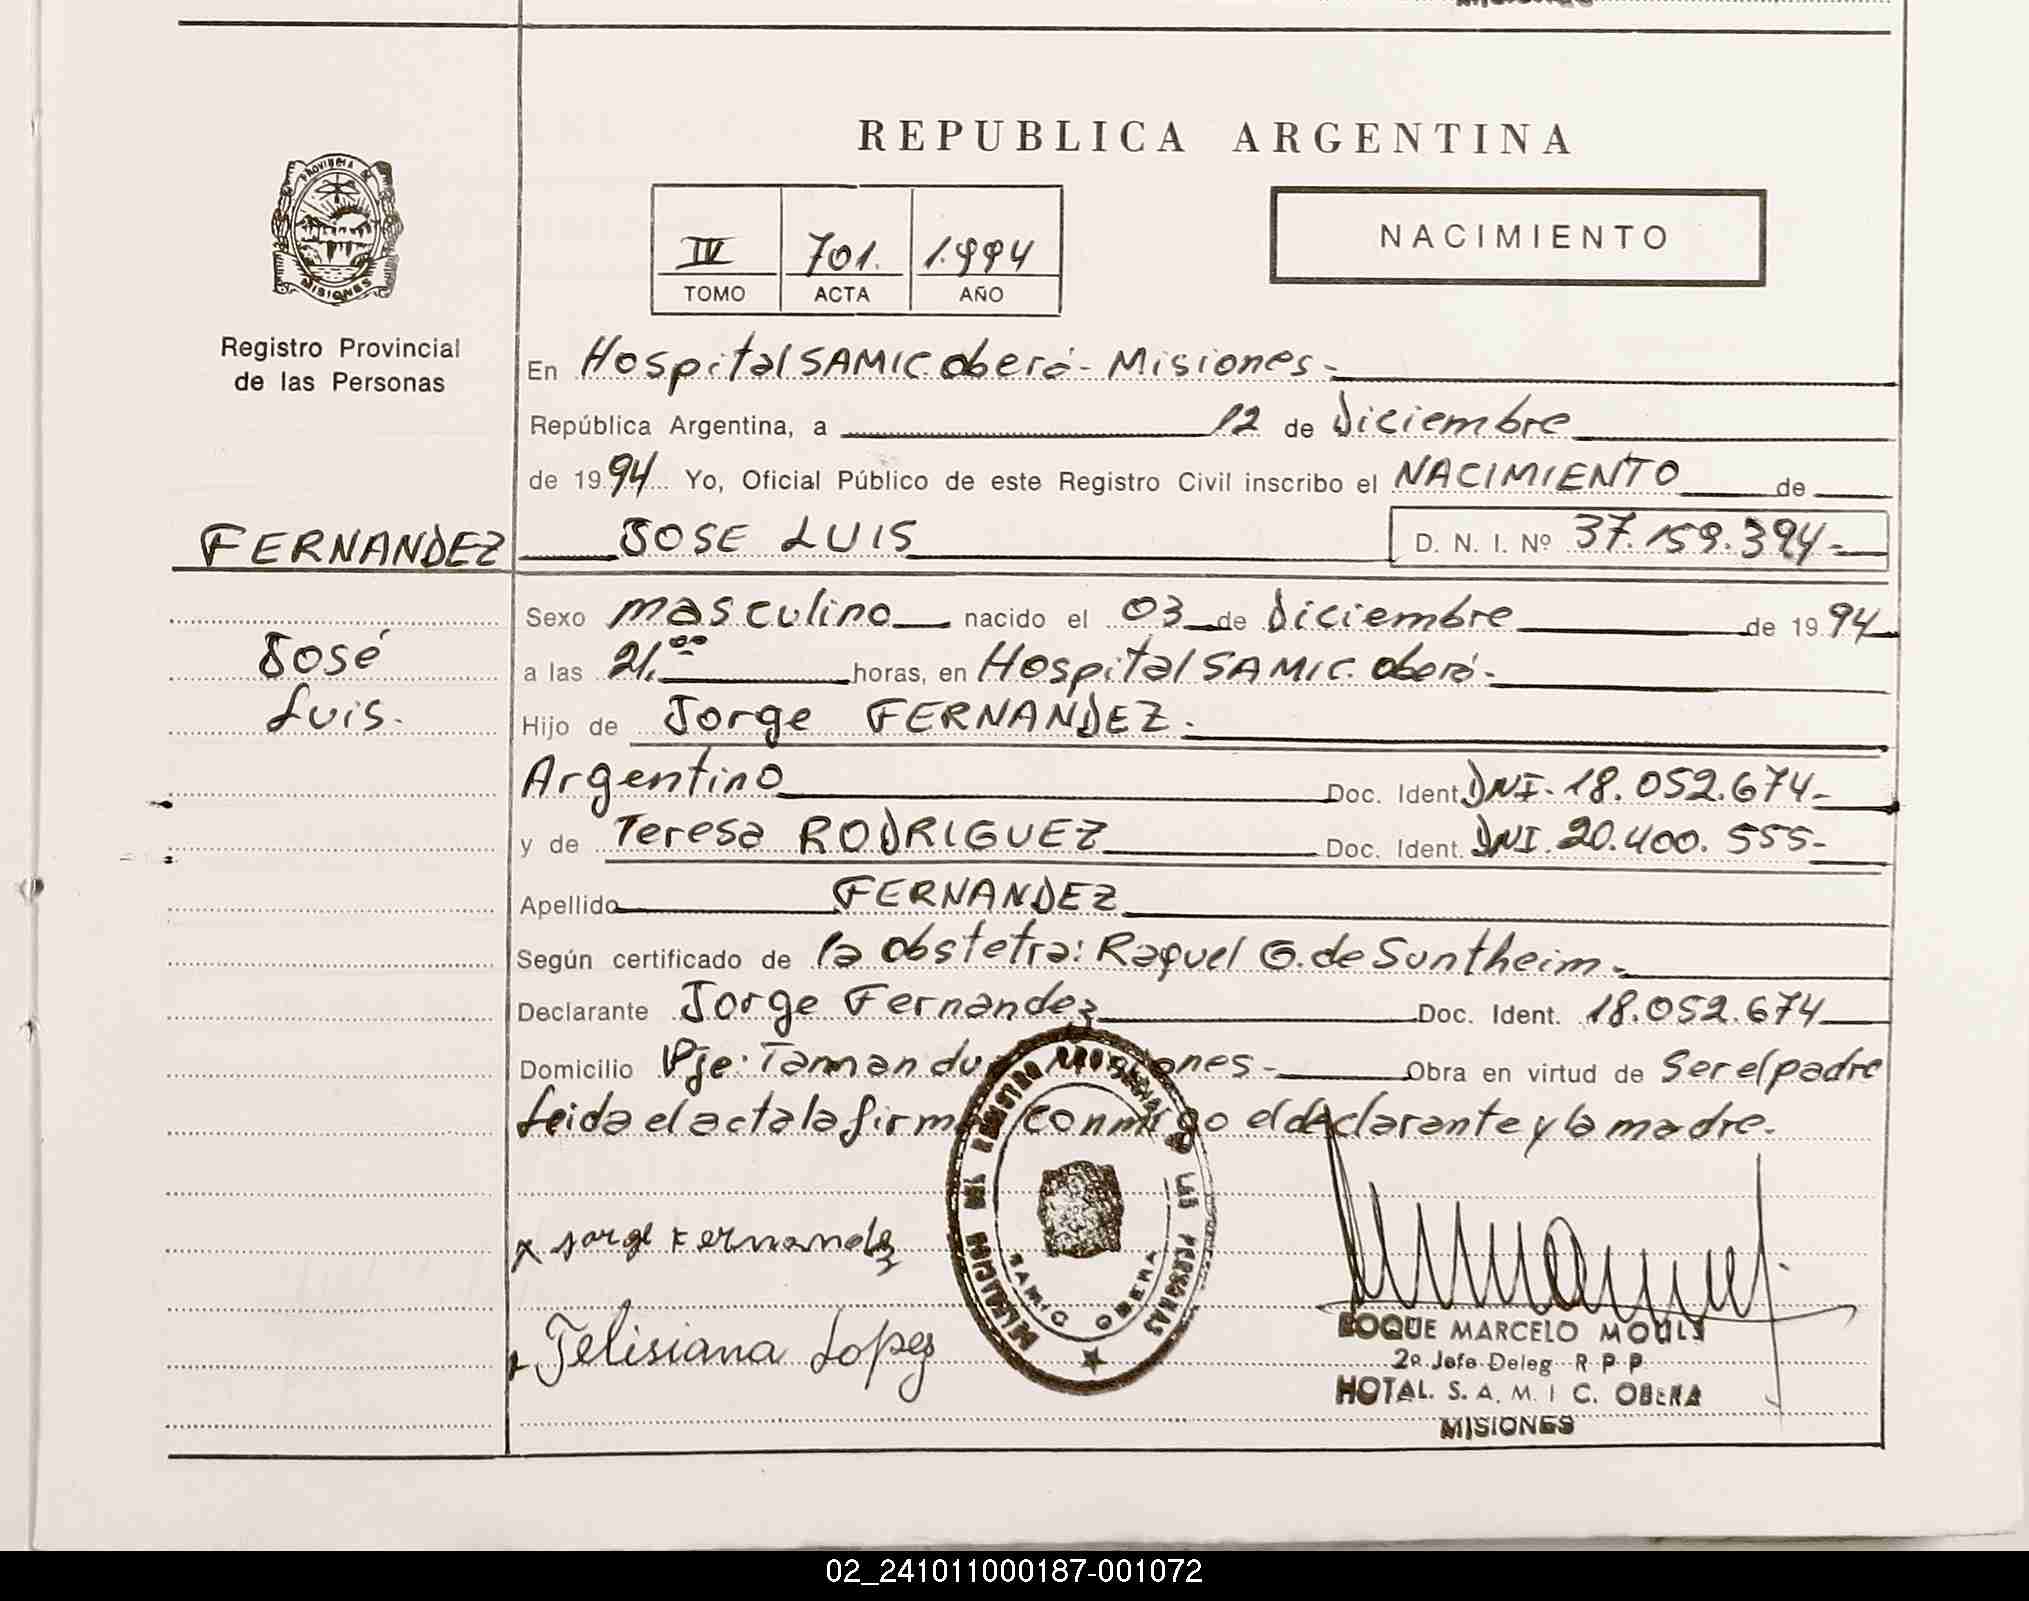 REPUBLICA ARGENTINA
PROVINCIA DE
MISIONES
IV 701. 1.994
TOMO ACTA AÑO
NACIMIENTO
Registro Provincial
de las Personas
En Hospital SAMIC. oberá - Misiones -
República Argentina, a 12 de Diciembre
de 1994 Yo, Oficial Público de este Registro Civil inscribo el NACIMIENTO de
FERNANDEZ JOSE LUIS D. N. I. Nº 37.159.394-
Sexo masculino nacido el 03 de Diciembre de 1994
José
Luis.
a las 21.00 horas, en Hospital SAMIC. oberá -
Hijo de Jorge FERNANDEZ.
Argentino Doc. Ident. DNI. 18.052.674-
y de Teresa RODRIGUEZ Doc. Ident. DNI. 20.400.555-
Apellido FERNANDEZ
Según certificado de la obstetra: Raquel G. de Suntheim -
Declarante Jorge Fernandez Doc. Ident. 18.052.674
Domicilio Pje: Tamandua Misiones - Obra en virtud de Ser el padre
Leida el acta la firman conmigo el declarante y la madre.
DELEGACION DEL REGISTRO PROVINCIAL DE LAS PERSONAS
SAMIC OBERA
x Jorge Fernandez
x Felisiana Lopez
ROQUE MARCELO MOULS
2º Jefe Deleg R P P
HOTAL. S. A. M. I C. OBERA
MISIONES
02_241011000187-001072